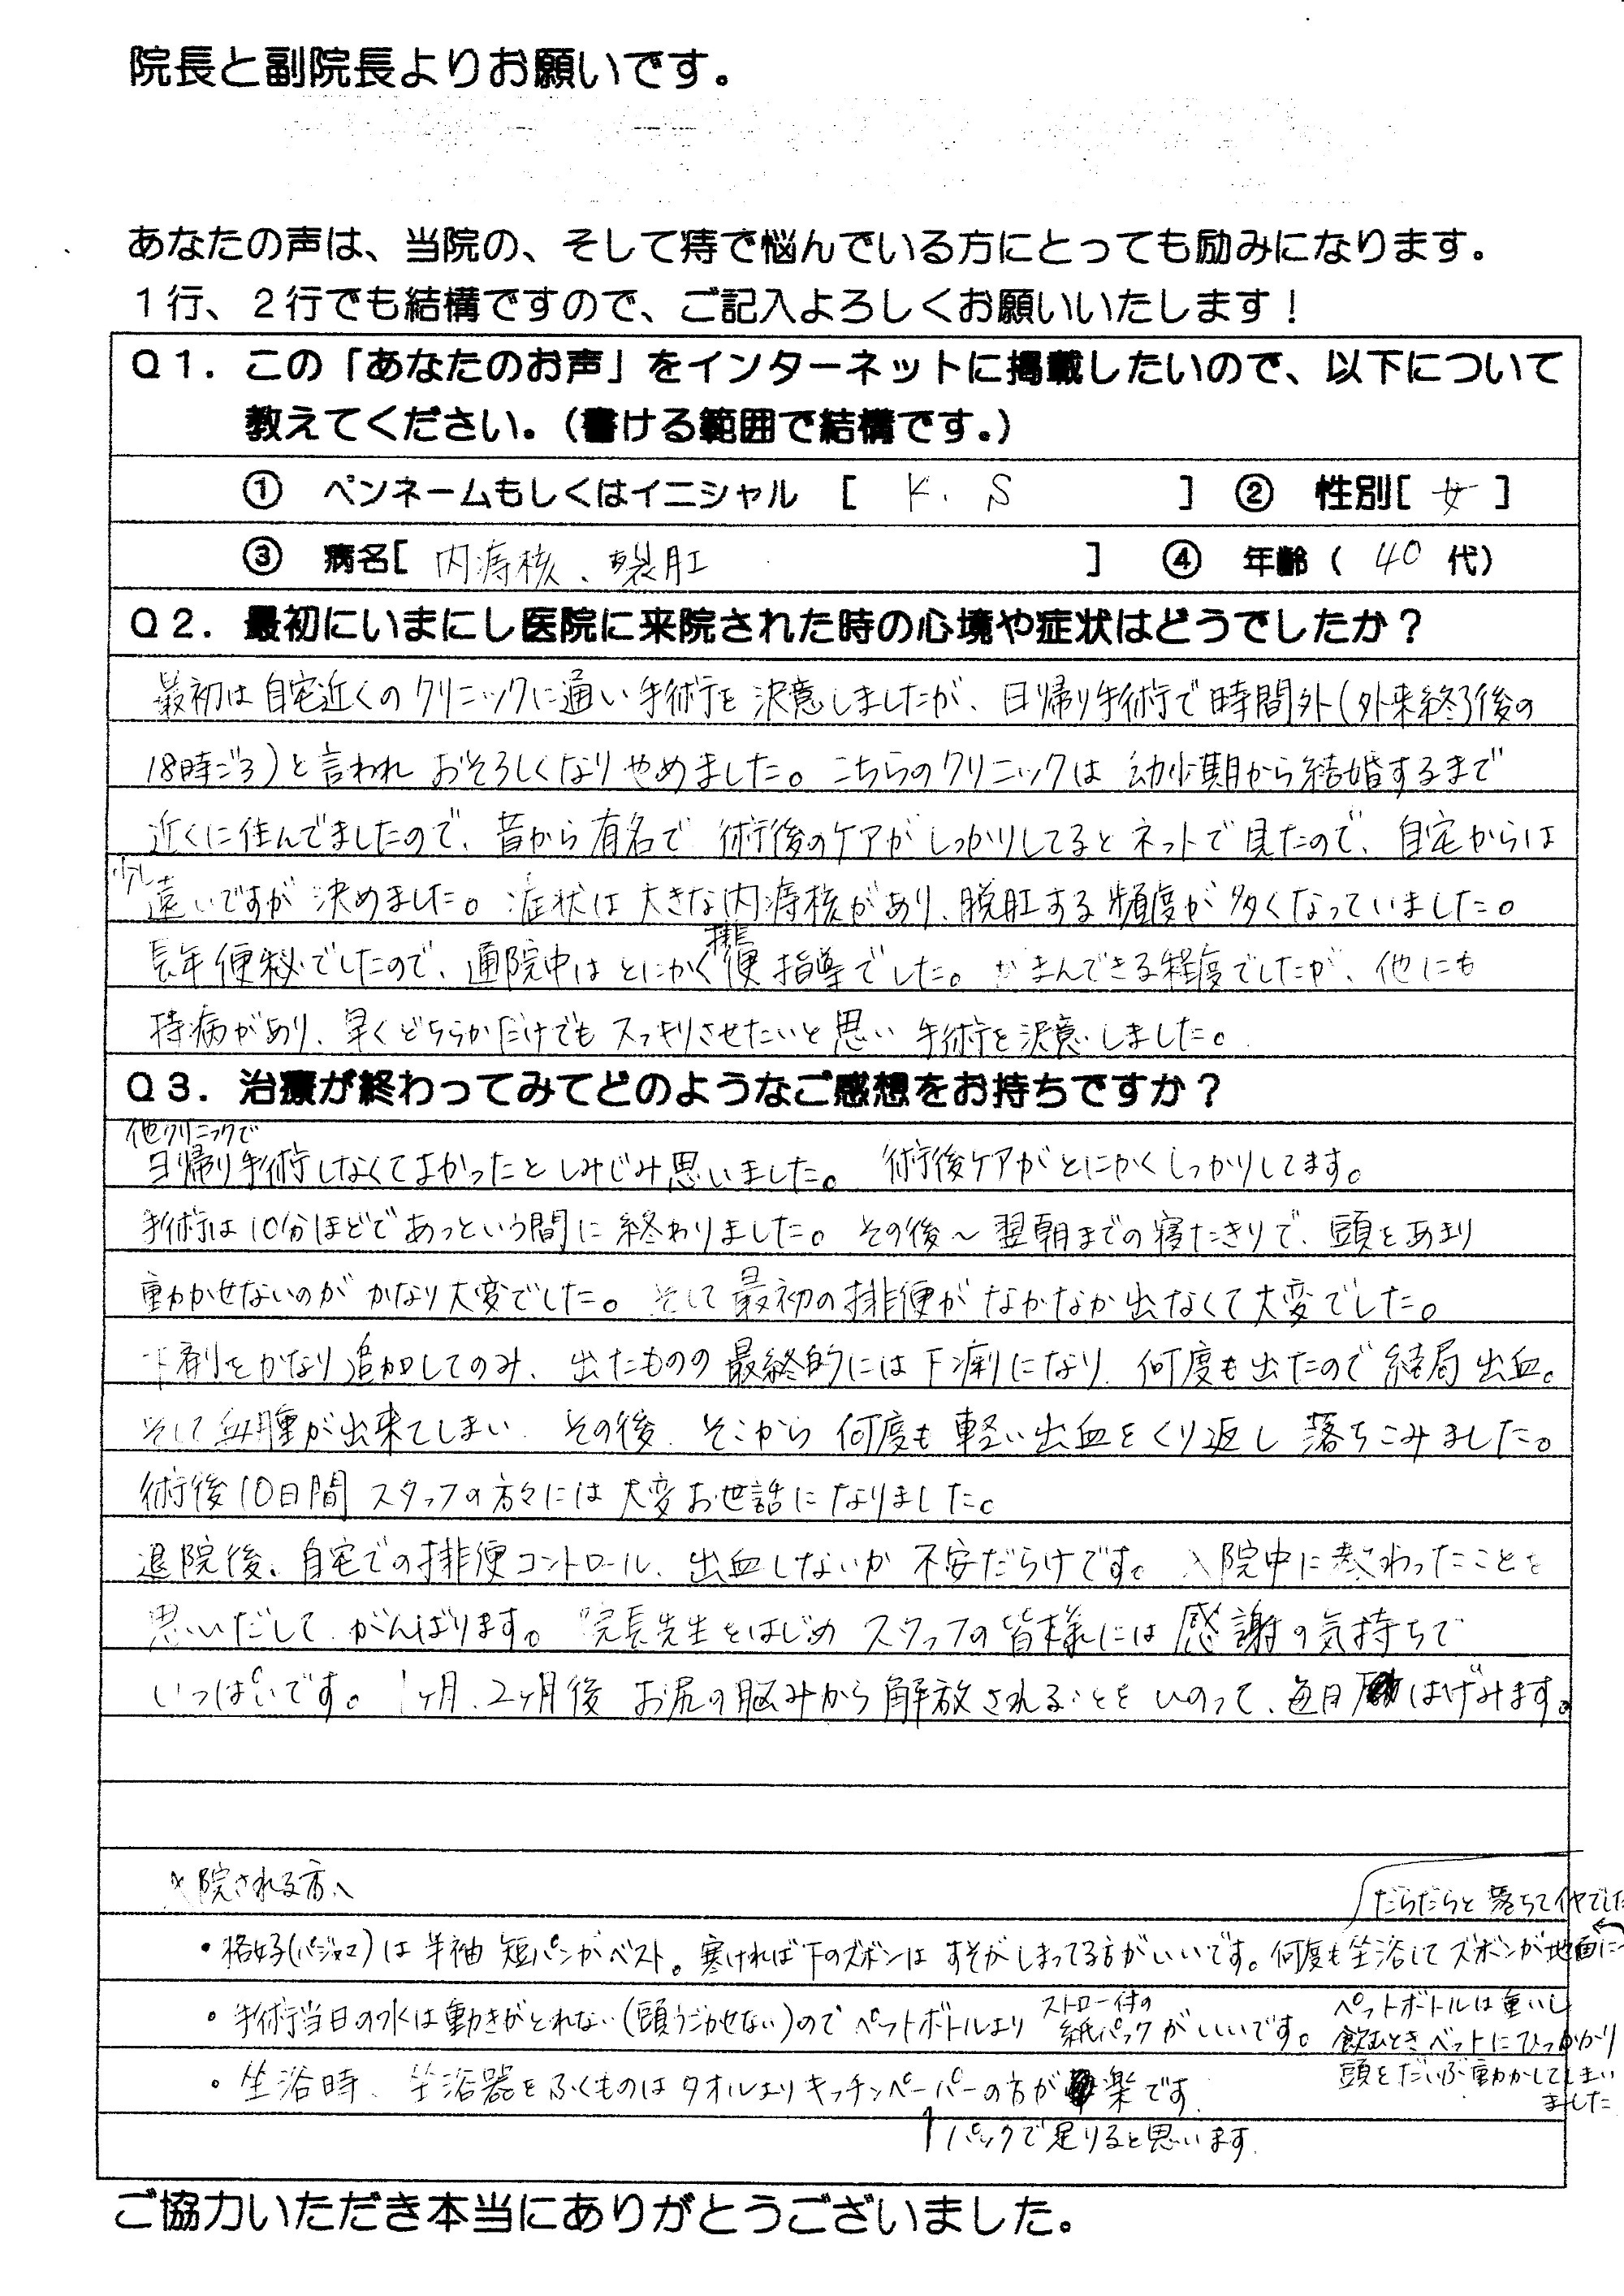 院長と副院長よりお願いです。
あなたの声は、当院の、そして痔で悩んでいる方にとっても励みになります。
1行、2行でも結構ですので、ご記入よろしくお願いいたします！
Q1. この「あなたのお声」をインターネットに掲載したいので、以下について
教えてください。(書ける範囲で結構です。)
① ペンネームもしくはイニシャル [ K. S ] ② 性別[ 女 ]
③ 病名[ 内痔核、裂肛 ] ④ 年齢( 40 代)
Q2. 最初にいまにし医院に来院された時の心境や症状はどうでしたか？
最初は自宅近くのクリニックに通い手術を決意しましたが、日帰り手術で時間外(外来終了後の
18時ごろ)と言われ おそろしくなりやめました。こちらのクリニックは 幼少期から結婚するまで
近くに住んでましたので、昔から有名で 術後のケアがしっかりしてるとネットで見たので、自宅からは
少し遠いですが 決めました。症状は大きな内痔核があり、脱肛する頻度が多くなっていました。
長年便秘でしたので、通院中はとにかく排便指導でした。がまんできる程度でしたが、他にも
持病があり、早くどちらかだけでもスッキリさせたいと思い 手術を決意しました。
Q3. 治療が終わってみてどのようなご感想をお持ちですか？
他クリニックで
日帰り手術しなくてよかったとしみじみ思いました。 術後ケアがとにかくしっかりしてます。
手術は10分ほどであっという間に終わりました。その後〜翌朝までの寝たきりで、頭をあまり
動かせないのが かなり大変でした。そして最初の排便がなかなか出なくて大変でした。
下剤をかなり追加してのみ、出たものの最終的には下痢になり、何度も出たので結局出血。
そして血腫が出来てしまい、その後、そこから何度も軽い出血をくり返し 落ちこみました。
術後10日間 スタッフの方々には大変お世話になりました。
退院後、自宅での排便コントロール、出血しないか 不安だらけです。入院中に教わったことを
思いだして、がんばります。院長先生をはじめ スタッフの皆様には感謝の気持ちで
いっぱいです。1ヶ月、2ヶ月後 お尻の脳みから解放されることをいのって、毎日はげみます。
入院される方へ
・格好(パジャマ)は半袖 短パンがベスト。寒ければ下のズボンは すそがしまってる方がいいです。何度も坐浴してズボンが地面に
だらだらと落ちてイヤでした
・手術当日の水は動きがとれない(頭うごかせない)のでペットボトルより ストロー付の紙パックがいいです。
ペットボトルは重いし
飲むときベットにひっかかり
頭をだいぶ動かしてしまい
ました
・坐浴時、坐浴器をふくものはタオルよりキッチンペーパーの方が楽です。
↑1パックで足りると思います。
ご協力いただき本当にありがとうございました。